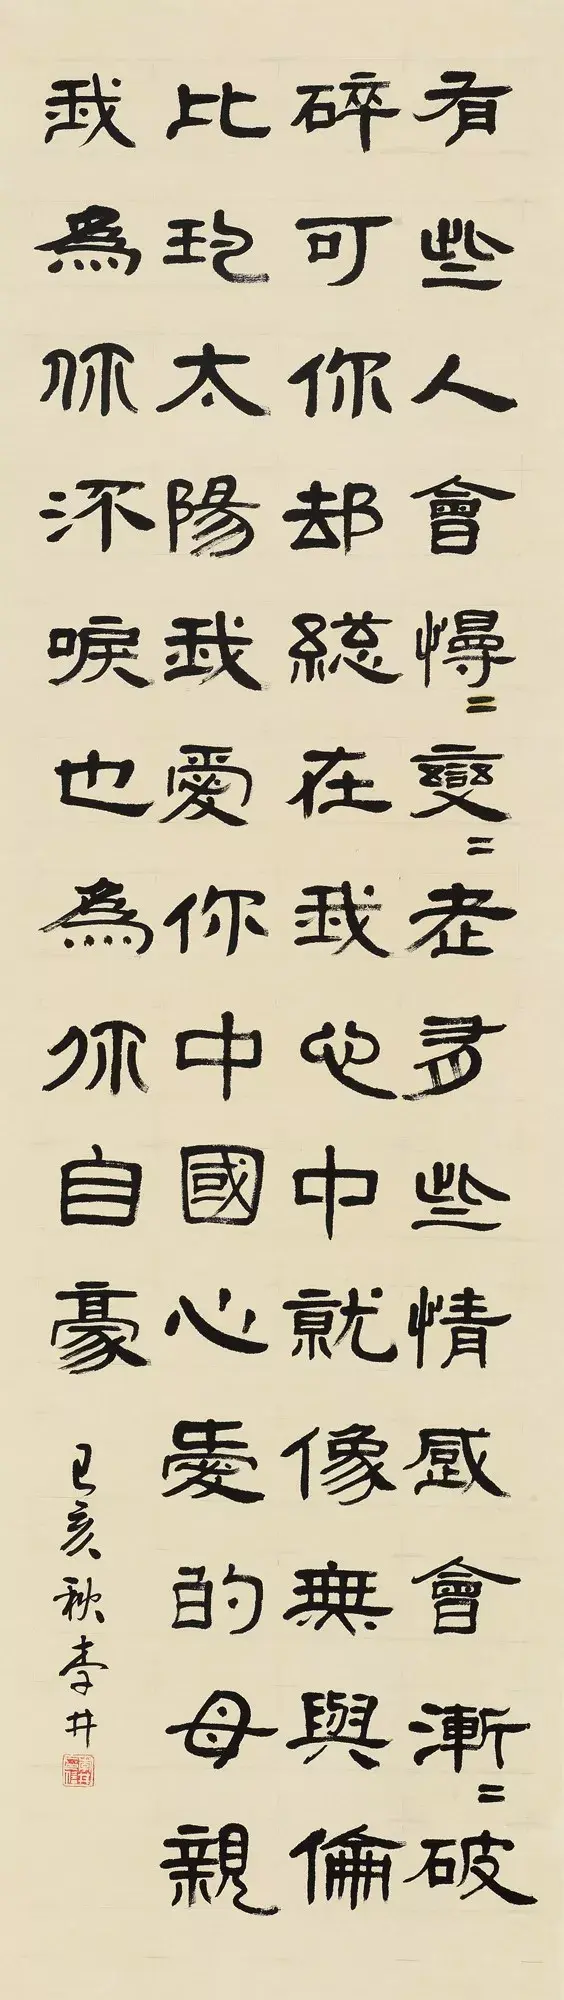 有些人會慢=變=老有些情感會漸=破
碎可你却總在我心中就像無與倫
比的太陽我愛你中國心愛的母親
我為你流淚也為你自豪
己亥秋李井